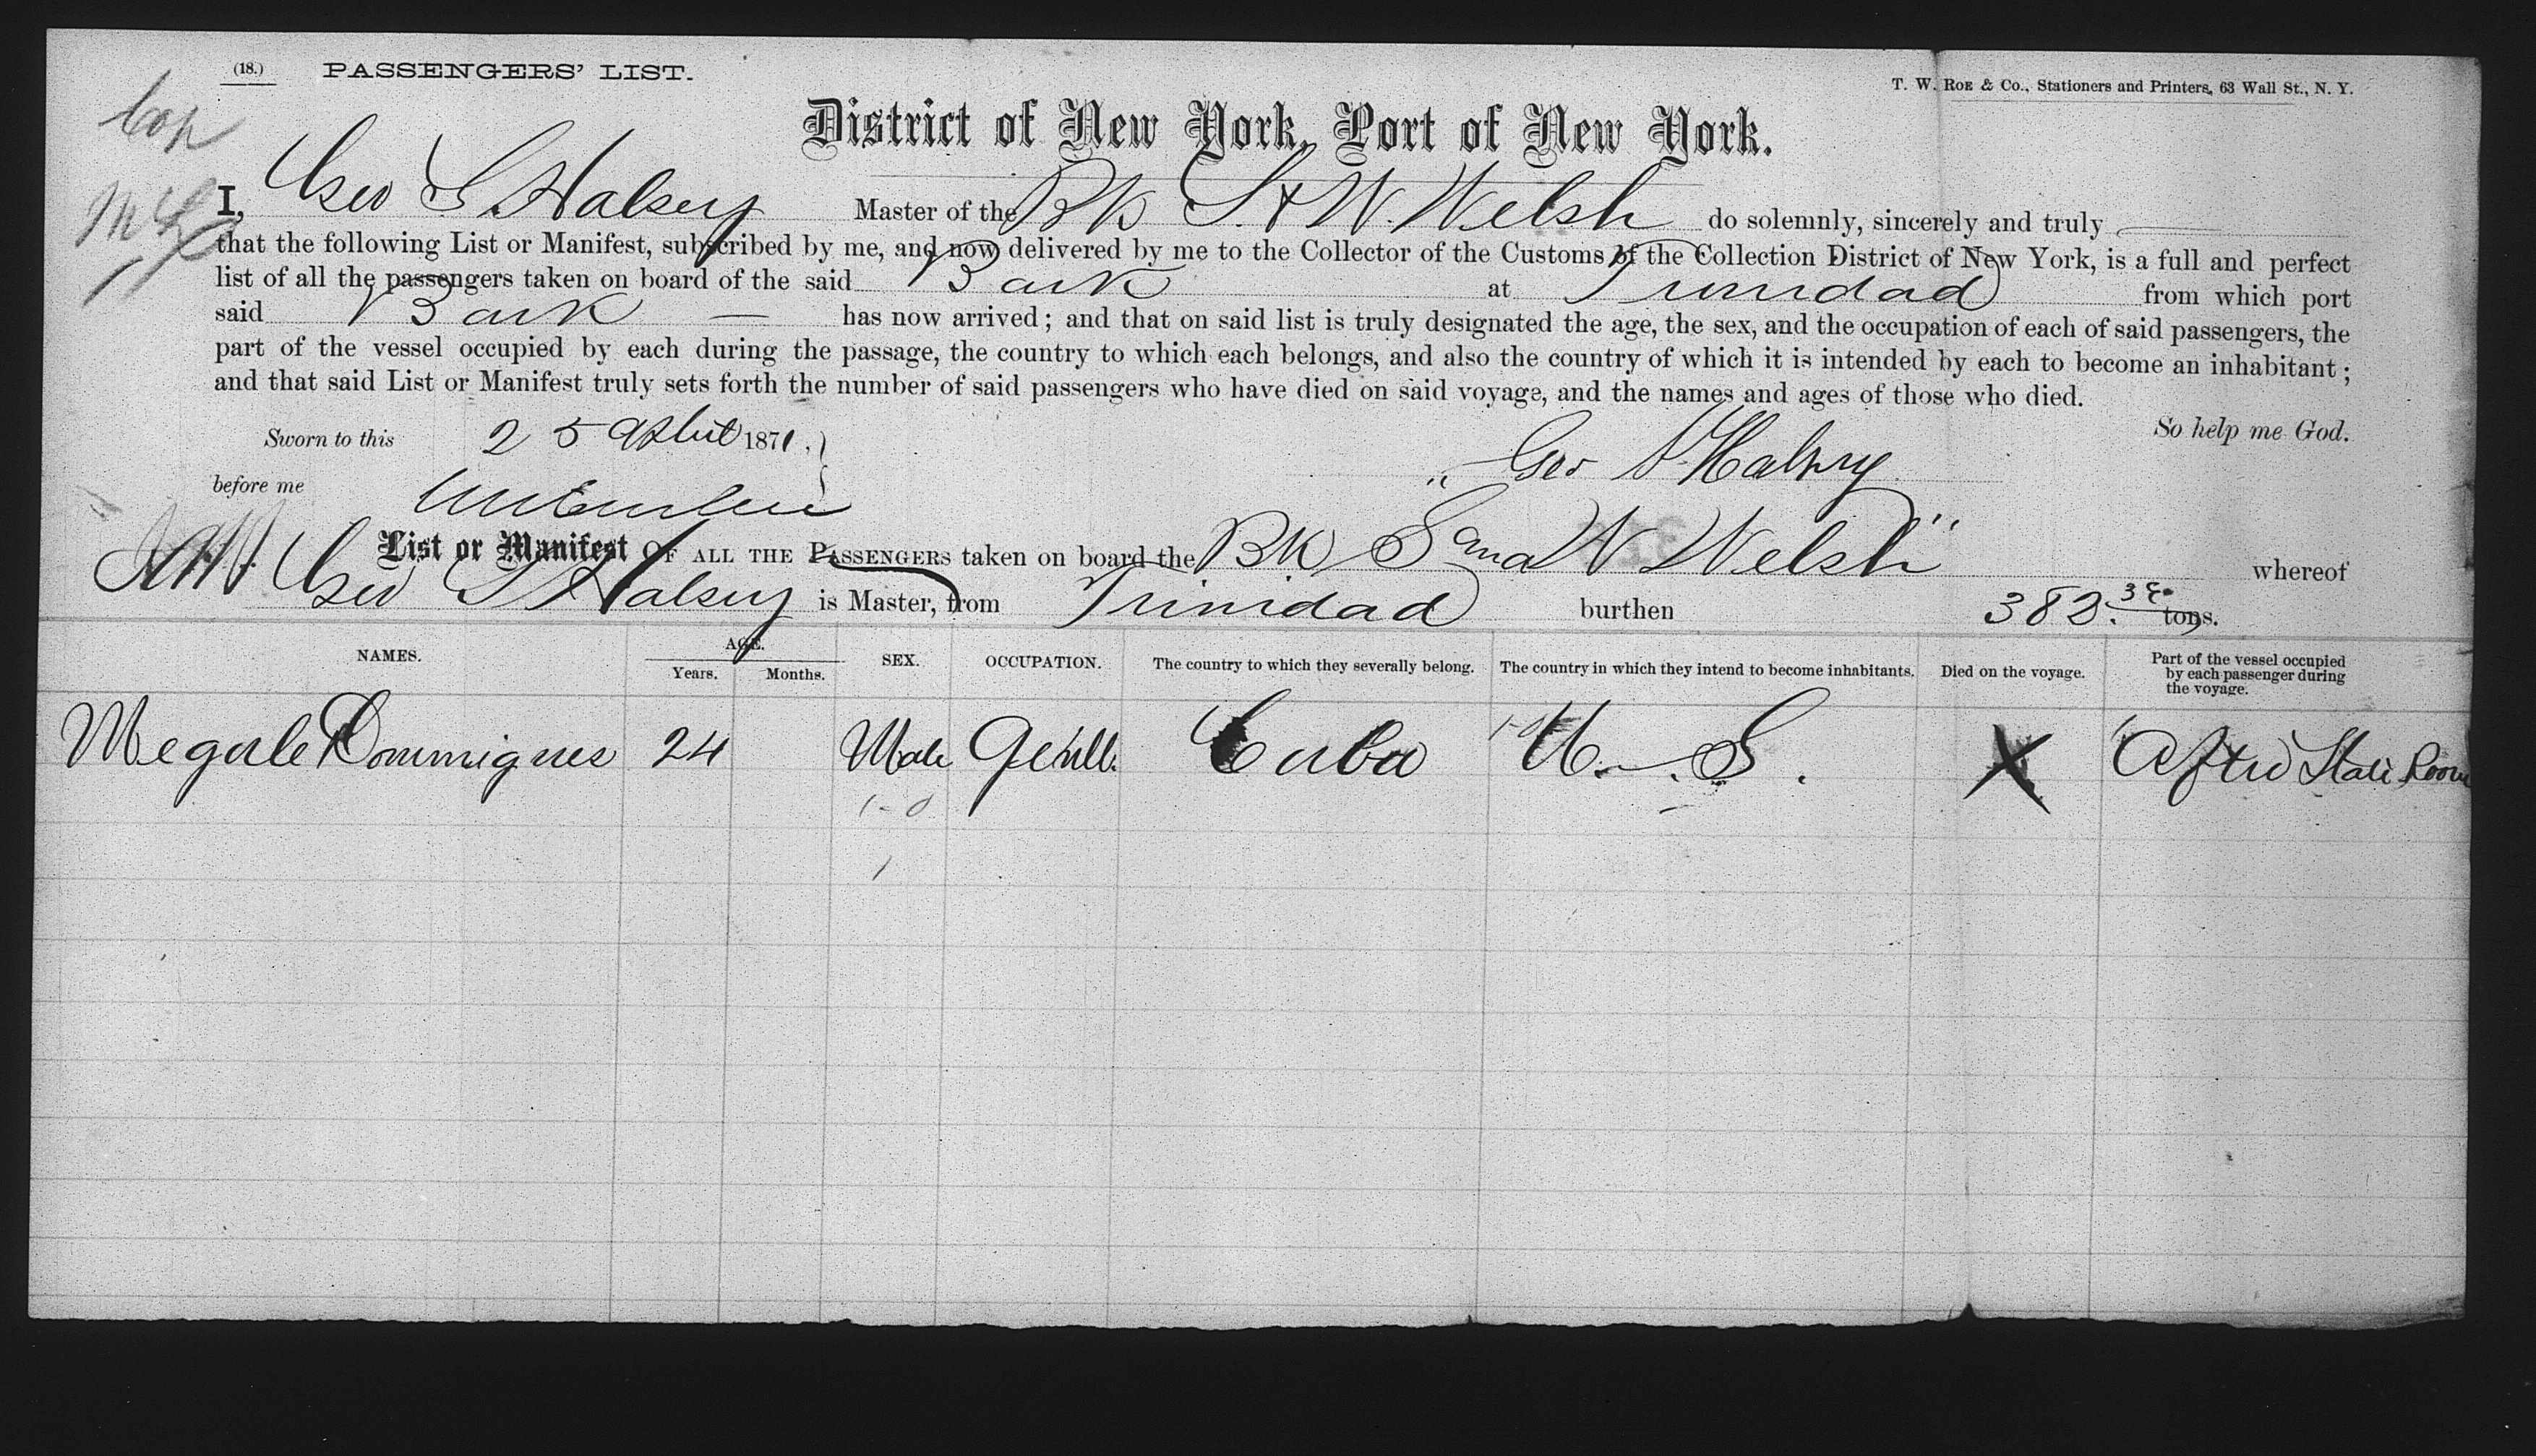 (18.) PASSENGERS' LIST.
T. W. ROE & Co., Stationers and Printers, 63 Wall St., N. Y.
Cop
District of New York, Port of New York.
I, Geo S Halsey Master of the Bk S & W. Welsh do solemnly, sincerely and truly
that the following List or Manifest, subscribed by me, and now delivered by me to the Collector of the Customs of the Collection District of New York, is a full and perfect
list of all the passengers taken on board of the said Bark at Trinidad from which port
said Bark — has now arrived; and that on said list is truly designated the age, the sex, and the occupation of each of said passengers, the
part of the vessel occupied by each during the passage, the country to which each belongs, and also the country of which it is intended by each to become an inhabitant;
and that said List or Manifest truly sets forth the number of said passengers who have died on said voyage, and the names and ages of those who died.
So help me God.
Sworn to this 25 April 1871.
Geo S Halsey
before me
List or Manifest OF ALL THE PASSENGERS taken on board the Bk W Welsh whereof
Geo S Halsey is Master, from Trinidad burthen 382. tons.
NAMES. AGE. SEX. OCCUPATION. The country to which they severally belong. The country in which they intend to become inhabitants. Died on the voyage. Part of the vessel occupied by each passenger during the voyage.
Years. Months.
24 Male Gentl. Cuba U. S. X After State Room
1-0
1